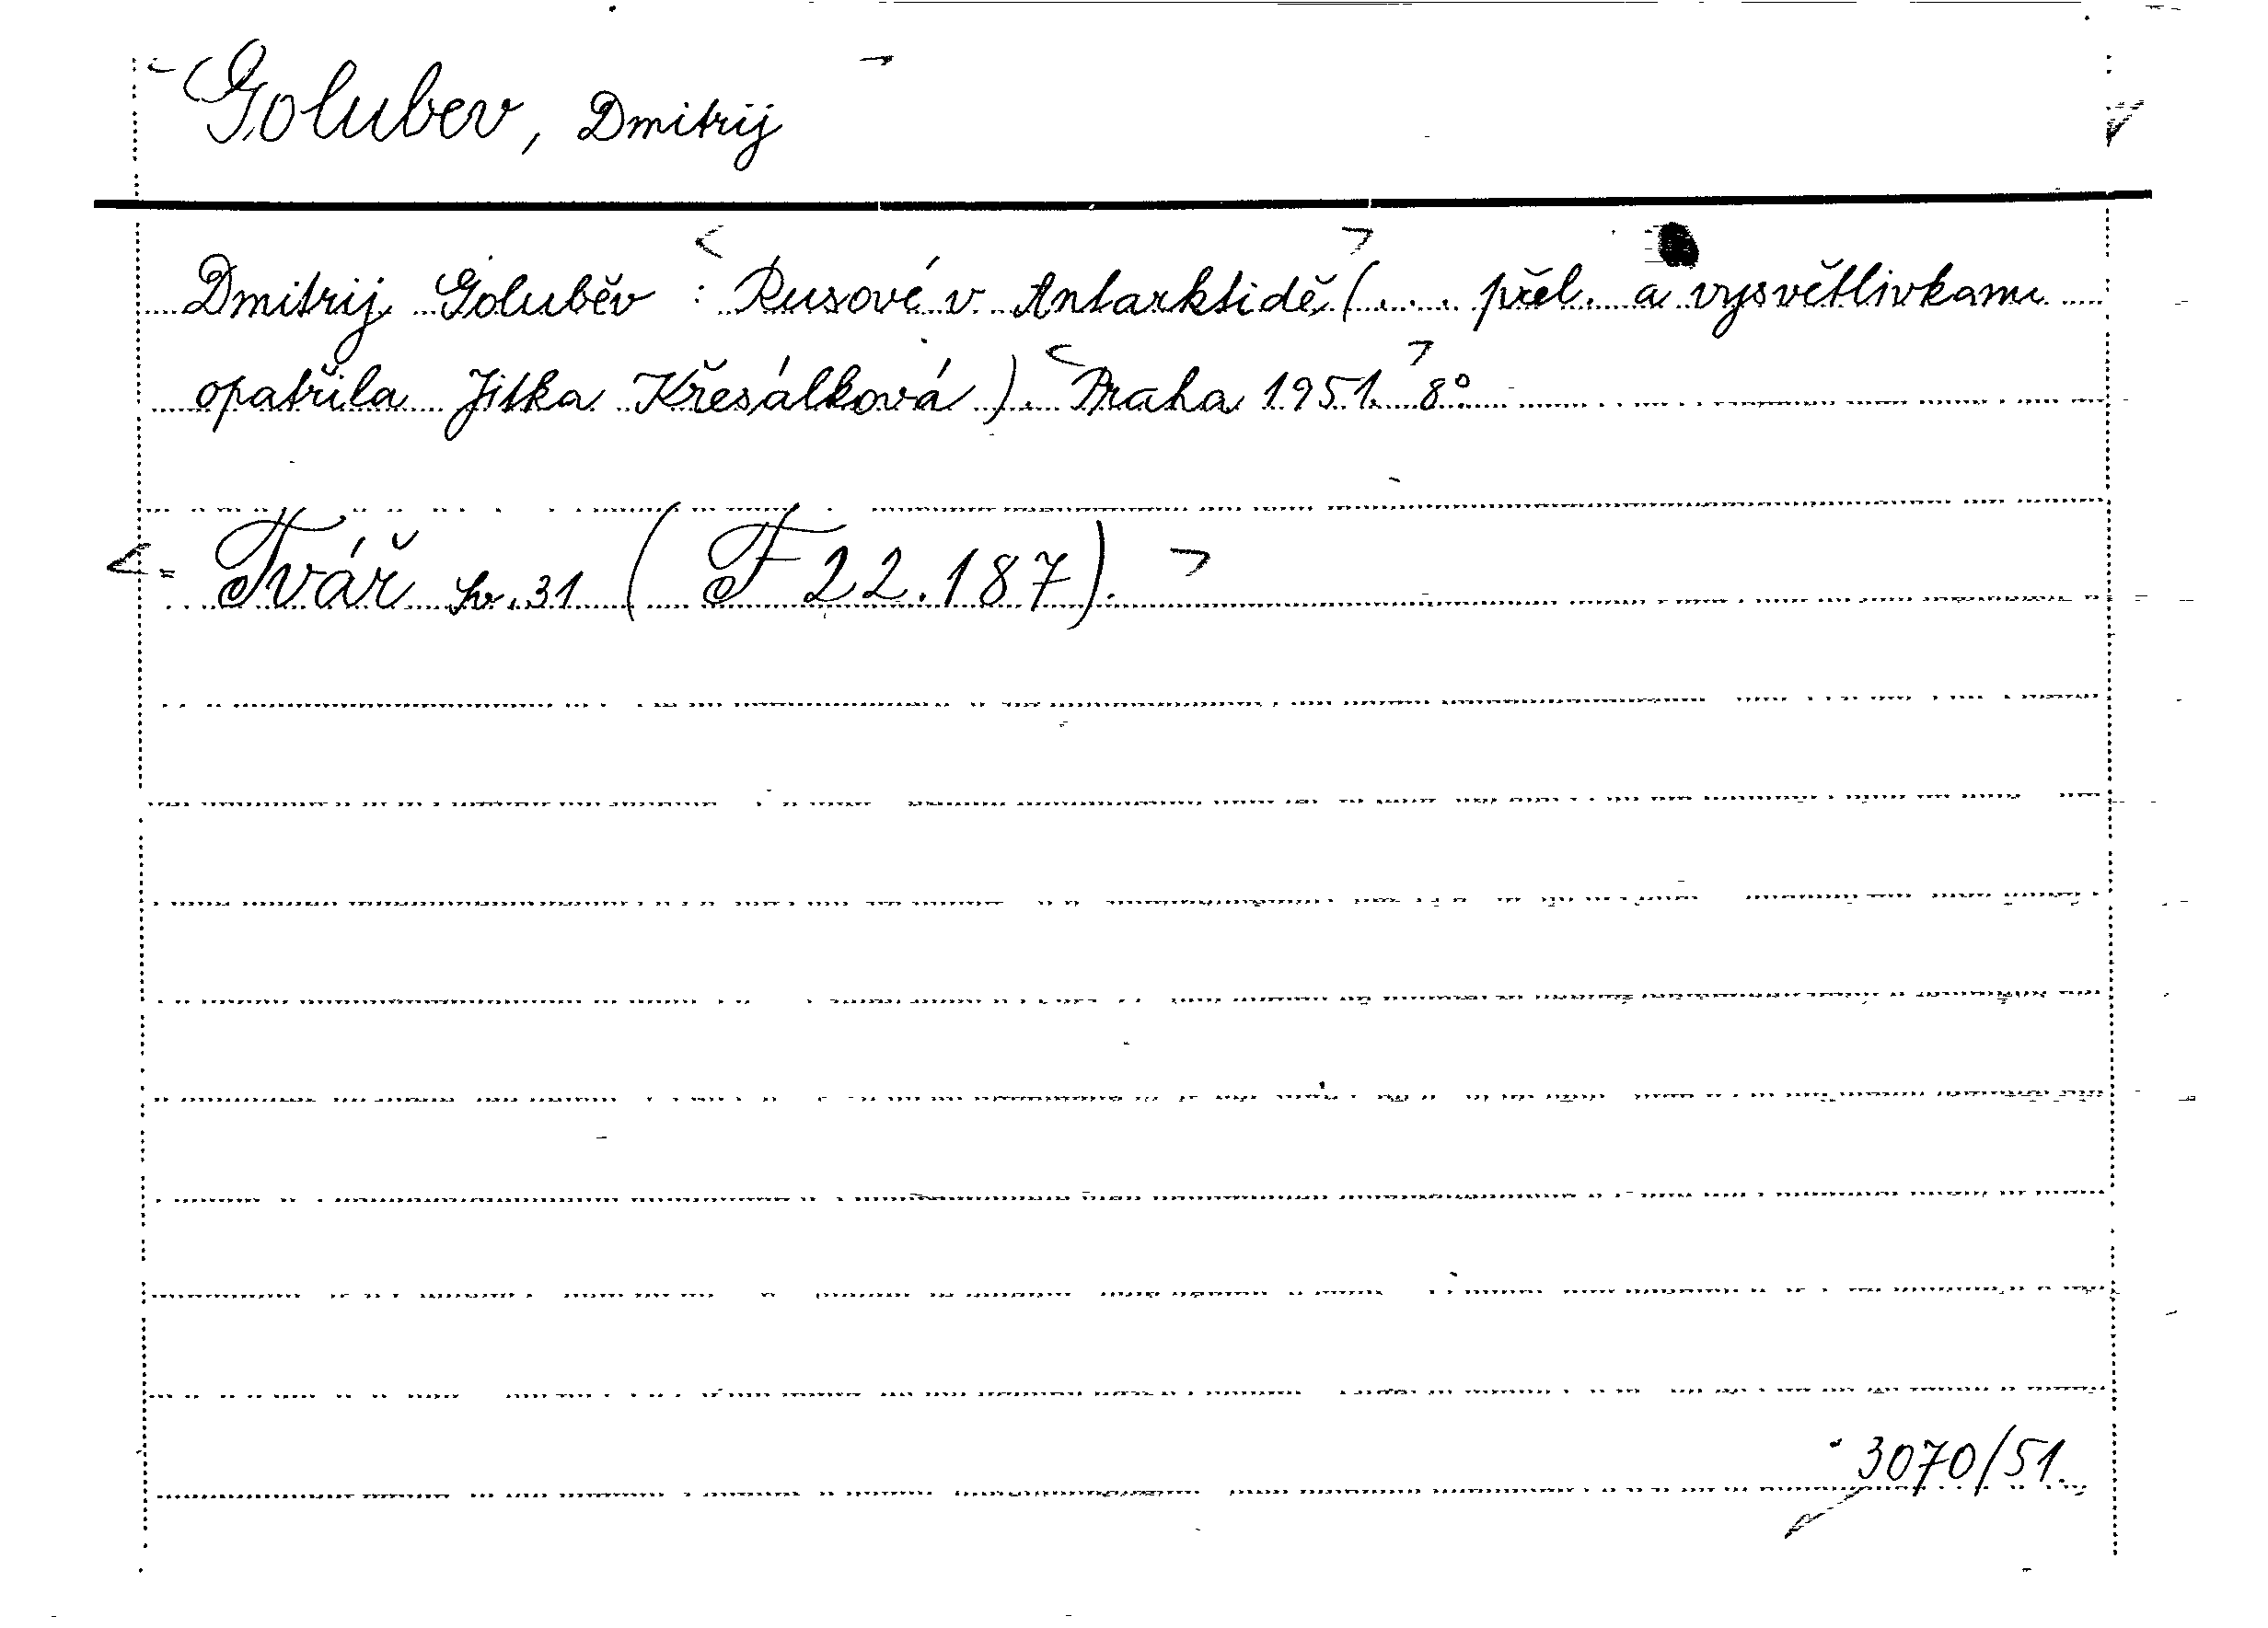 Golubev, Dmitrij
Dmitrij Goluběv : Rusové v Antarktidě, (... přel. a vysvětlivkami
opatřila Jitka Křesálková). Praha 1951. 8°
= Tvář sv. 31 (F 22.187).
3070/51.